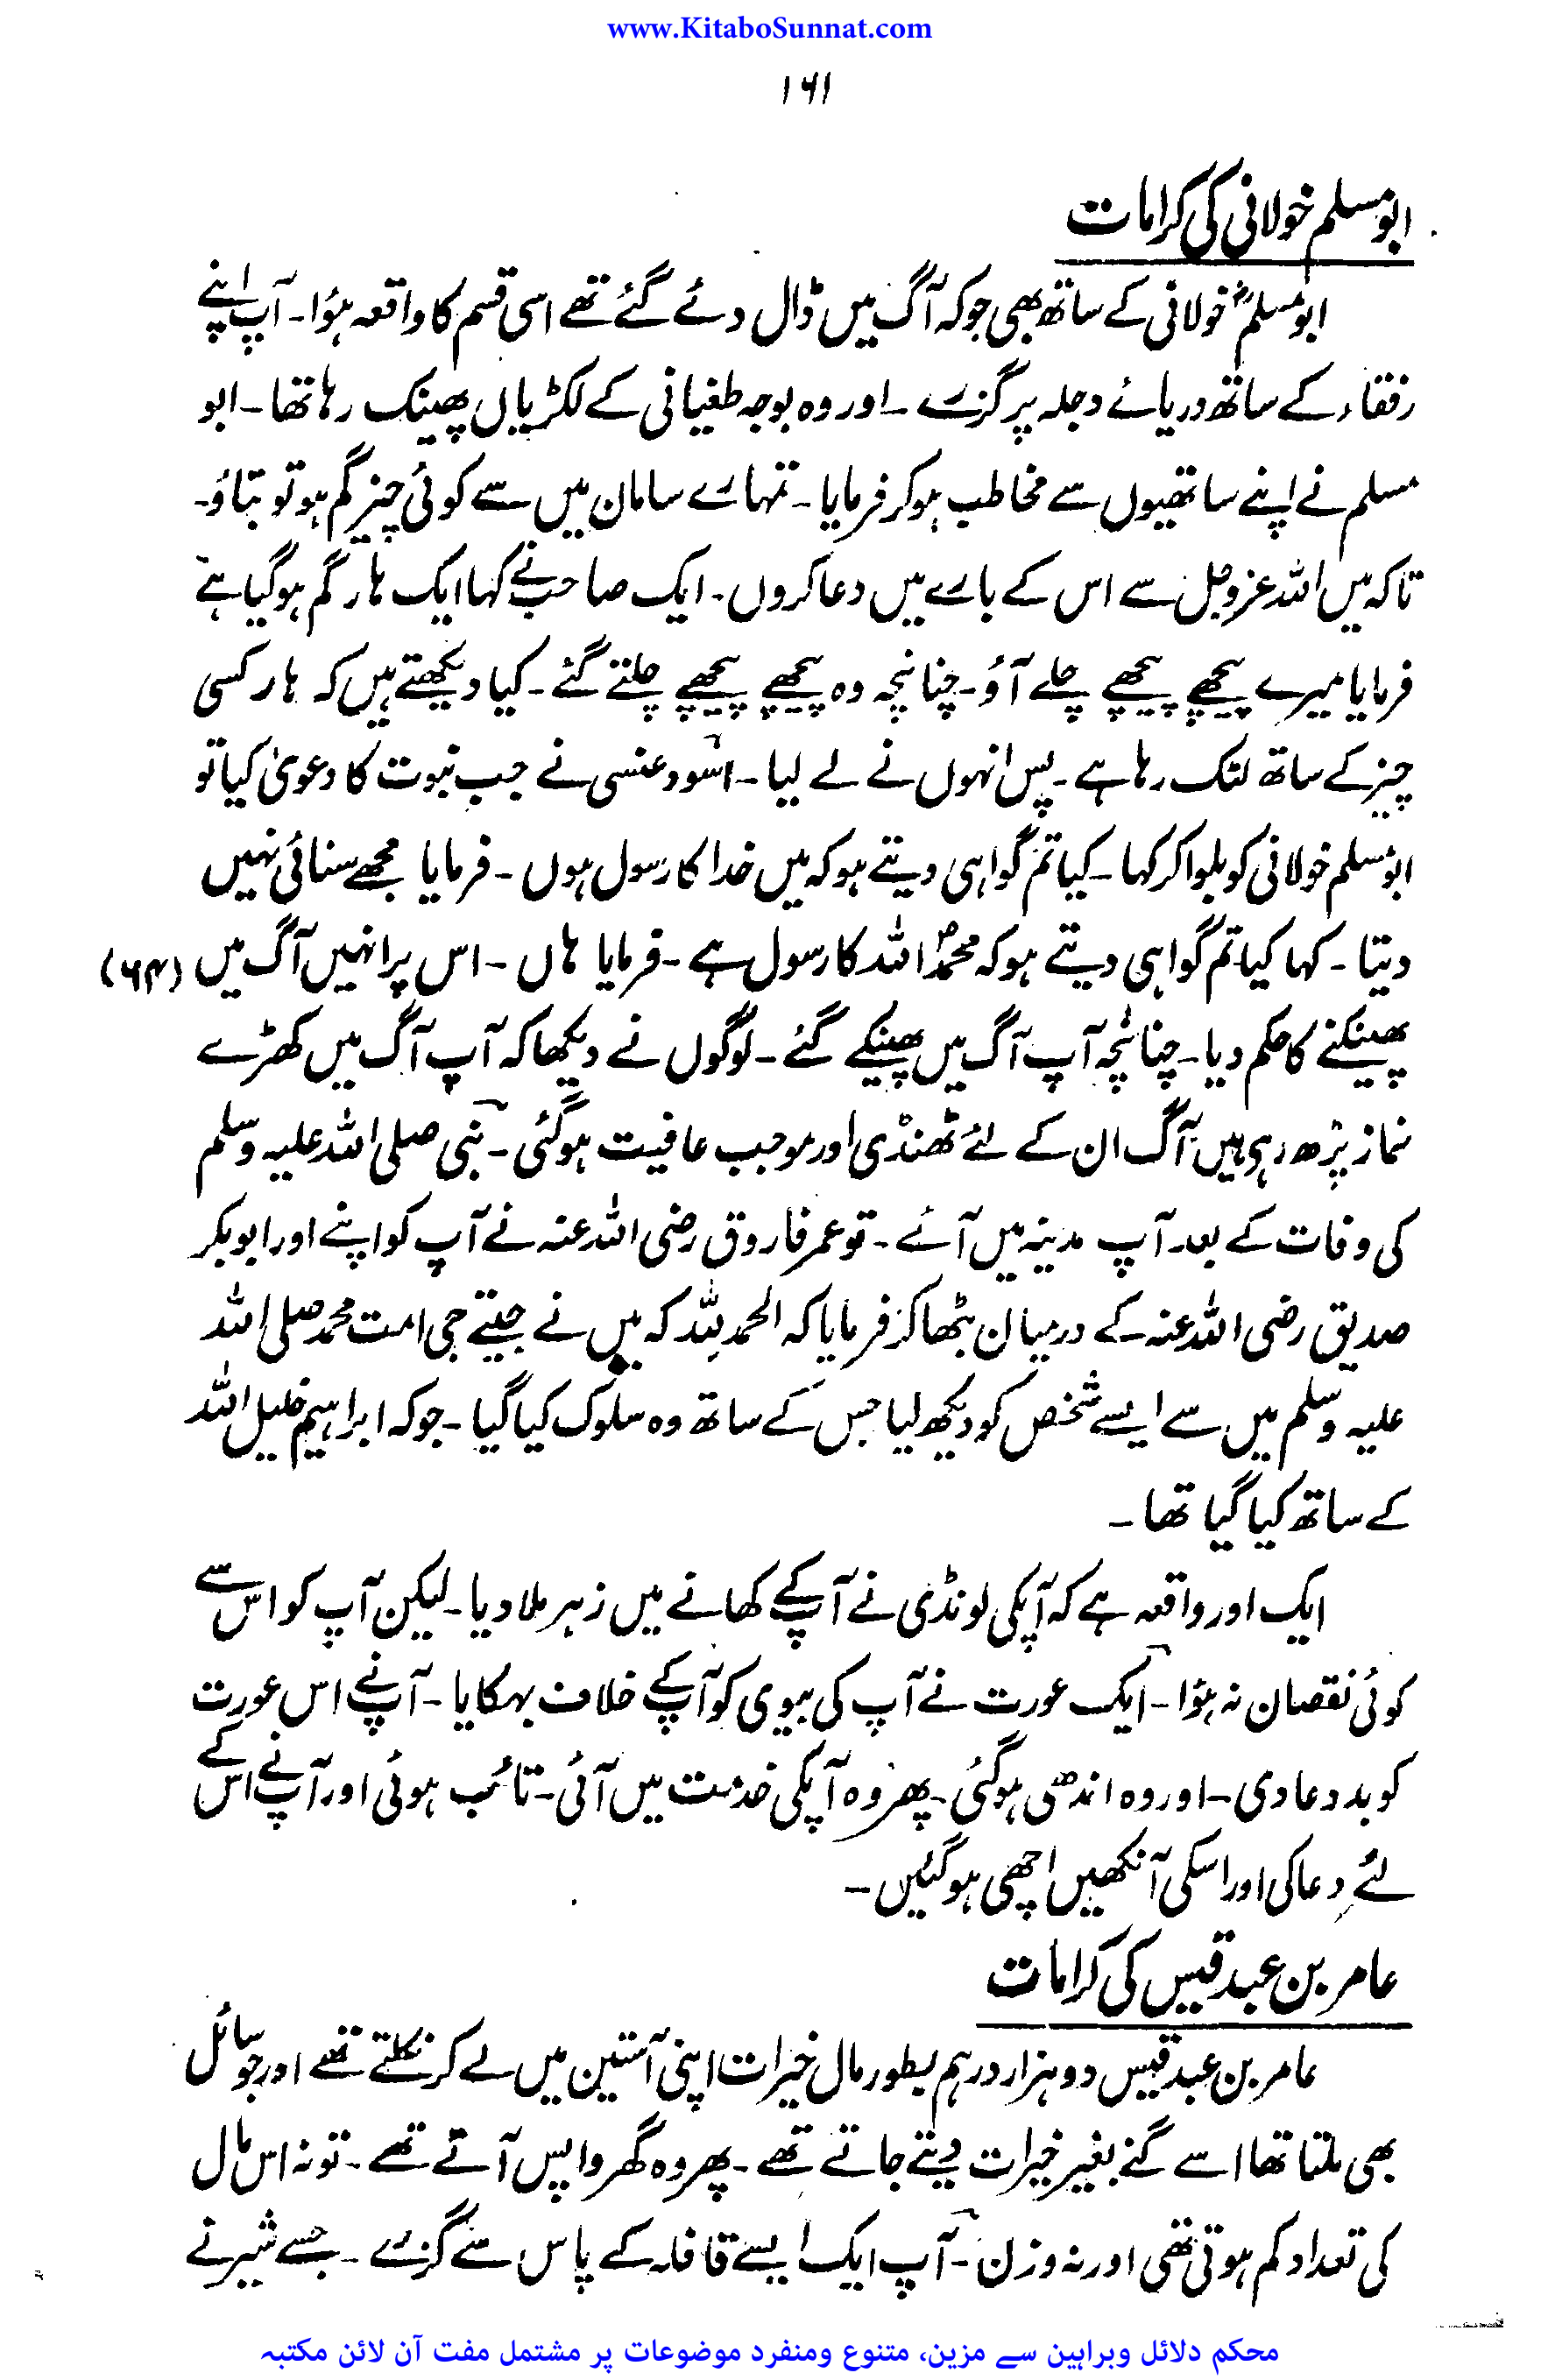 www.KitaboSunnat.com
۱۶۱
ابو مسلم خولانی کی کرامات
ابو مسلمؒ خولانی کے ساتھ بھی جو کہ آگ میں ڈال دئے گئے تھے اسی قسم کا واقعہ ہؤا۔ آپ اپنے
رفقاء کے ساتھ دریائے دجلہ پر گزرے ۔ اور وہ بوجہ طغیانی کے لکڑیاں پھینک رہا تھا ۔ ابو
مسلم نے اپنے ساتھیوں سے مخاطب ہو کر فرمایا ۔ تمہارے سامان میں سے کوئی چیز گم ہو تو بتاؤ۔
تاکہ میں اللہ عزوجل سے اس کے بارے میں دعا کروں ۔ ایک صاحب نے کہا ایک ہار گم ہو گیا ہے
فرمایا میرے پیچھے پیچھے چلے آؤ۔ چنانچہ وہ پیچھے پیچھے چلتے گئے ۔ کیا دیکھتے ہیں کہ ہار کسی
چیز کے ساتھ لٹک رہا ہے ۔ پس انہوں نے لے لیا ۔ اسود عنسی نے جب نبوت کا دعویٰ کیا تو
ابو مسلم خولانی کو بلوا کر کہا ۔ کیا تم گواہی دیتے ہو کہ میں خدا کا رسول ہوں ۔ فرمایا مجھے سنائی نہیں
دیتا ۔ کہا کیا تم گواہی دیتے ہو کہ محمدؐ اللہ کا رسول ہے ۔ فرمایا ہاں ۔ اس پر انہیں آگ میں (۶۴)
پھینکنے کا حکم دیا ۔ چنانچہ آپ آگ میں پھینکے گئے ۔ لوگوں نے دیکھا کہ آپ آگ میں کھڑے
نماز پڑھ رہے ہیں آگ ان کے لئے ٹھنڈی اور موجب عافیت ہو گئی ۔ نبی صلی اللہ علیہ وسلم
کی وفات کے بعد آپ مدینہ میں آئے ۔ تو عمر فاروق رضی اللہ عنہ نے آپ کو اپنے اور ابو بکر
صدیق رضی اللہ عنہ کے درمیان بٹھا کر فرمایا کہ الحمد للہ کہ میں نے جیتے جی امت محمد صلی اللہ
علیہ وسلم میں سے ایسے شخص کو دیکھ لیا جس کے ساتھ وہ سلوک کیا گیا ۔ جو کہ ابراہیم خلیل اللہ
کے ساتھ کیا گیا تھا ۔
ایک اور واقعہ ہے کہ آپکی لونڈی نے آپکے کھانے میں زہر ملا دیا ۔ لیکن آپ کو اس سے
کوئی نقصان نہ ہؤا ۔ ایک عورت نے آپ کی بیوی کو آپکے خلاف بہکایا ۔ آپنے اس عورت
کو بد دعا دی ۔ اور وہ اندھی ہو گئی ۔ پھر وہ آپکی خدمت میں آئی ۔ تائب ہوئی اور آپنے اس کے
لئے دعا کی اور اسکی آنکھیں اچھی ہو گئیں ۔
عامر بن عبد قیس کی کرامات
عامر بن عبد قیس دو ہزار درہم بطور مال خیرات اپنی آستین میں لے کر نکلتے تھے اور جو سائل
بھی ملتا تھا اسے گنے بغیر خیرات دیتے جاتے تھے ۔ پھر وہ گھر واپس آتے تھے ۔ تو نہ اس مال
کی تعداد کم ہوتی تھی اور نہ وزن ۔ آپ ایک ایسے قافلہ کے پاس سے گزرے ۔ جسے شیر نے
محکم دلائل وبراہین سے مزین، متنوع ومنفرد موضوعات پر مشتمل مفت آن لائن مکتبہ